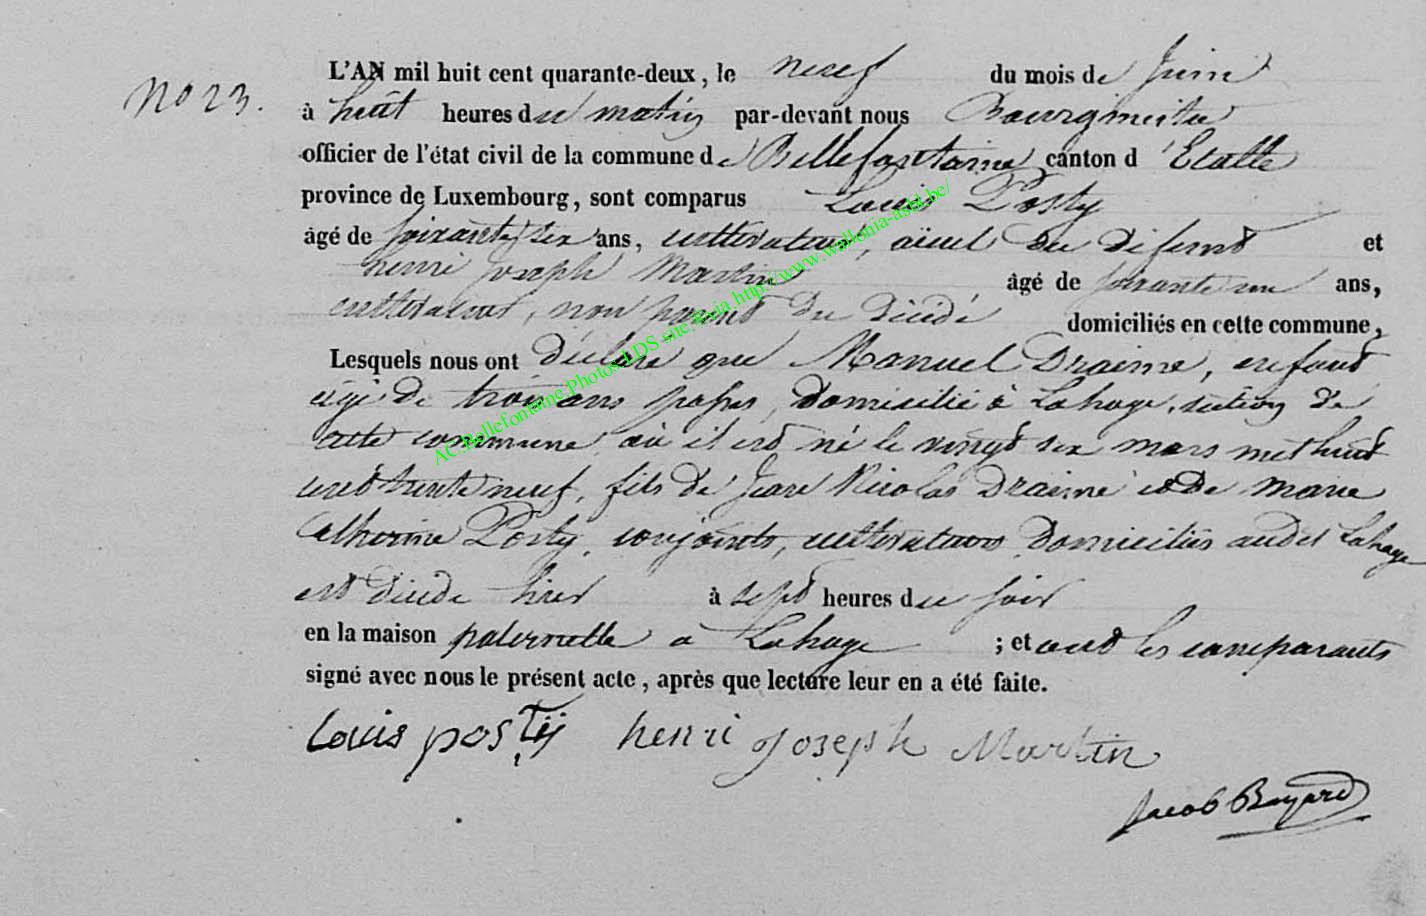 No 23.
L'AN mil huit cent quarante-deux, le neuf du mois de Juin
à huit heures du matin par-devant nous Bourgmestre
officier de l'état civil de la commune de Bellefontaine canton d'Etalle
province de Luxembourg, sont comparus Louis Posty
âgé de soixante six ans, cultivateur, aïeul du défunt et
henri joseph Martin âgé de soixante un ans,
cultivateur, non parent du décédé domiciliés en cette commune,
Lesquels nous ont déclaré que Manuel Draime, enfant
âgé de trois ans passés, domicilié à Lahage, section de
cette commune où il est né le vingt six mars mil huit
cent trente neuf, fils de Jean Nicolas Draime et de Marie
Catherine Posty, conjoints, cultivateurs domiciliés audit Lahage
est décédé hier à sept heures du soir
en la maison paternelle à Lahage ; et ont les comparants
signé avec nous le présent acte, après que lecture leur en a été faite.
Louis postÿ henri joseph Martin
Jacob Bayard
AC.Bellefontaine.Photos LDS site. via http://www.wallonia-asbl.be/